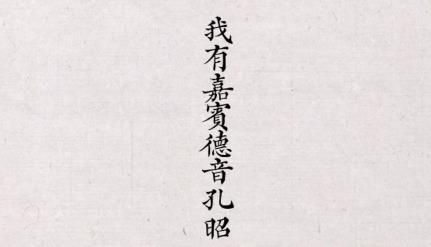 我有嘉賓德音孔昭